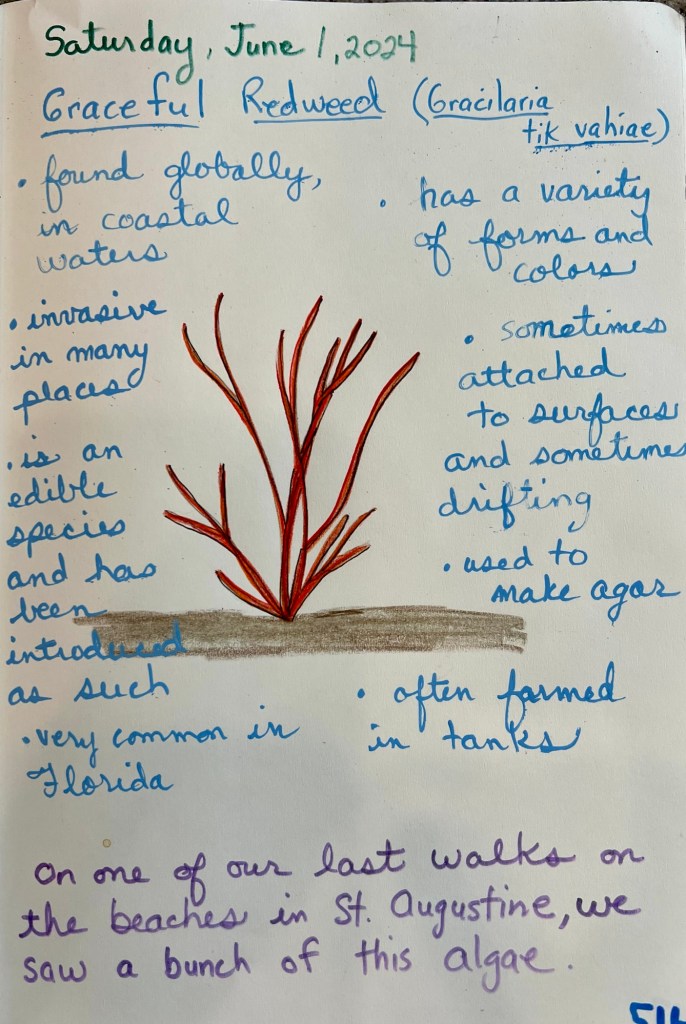 Saturday, June 1, 2024
Graceful Redweed (Gracilaria
tikvahiae)
• found globally,
in coastal
waters
• invasive
in many
places
• is an
edible
species
and has
been
introduced
as such
• very common in
Florida
• has a variety
of forms and
colors
• sometimes
attached
to surfaces
and sometimes
drifting
• used to
make agar
• often farmed
in tanks
On one of our last walks on
the beaches in St. Augustine, we
saw a bunch of this algae.